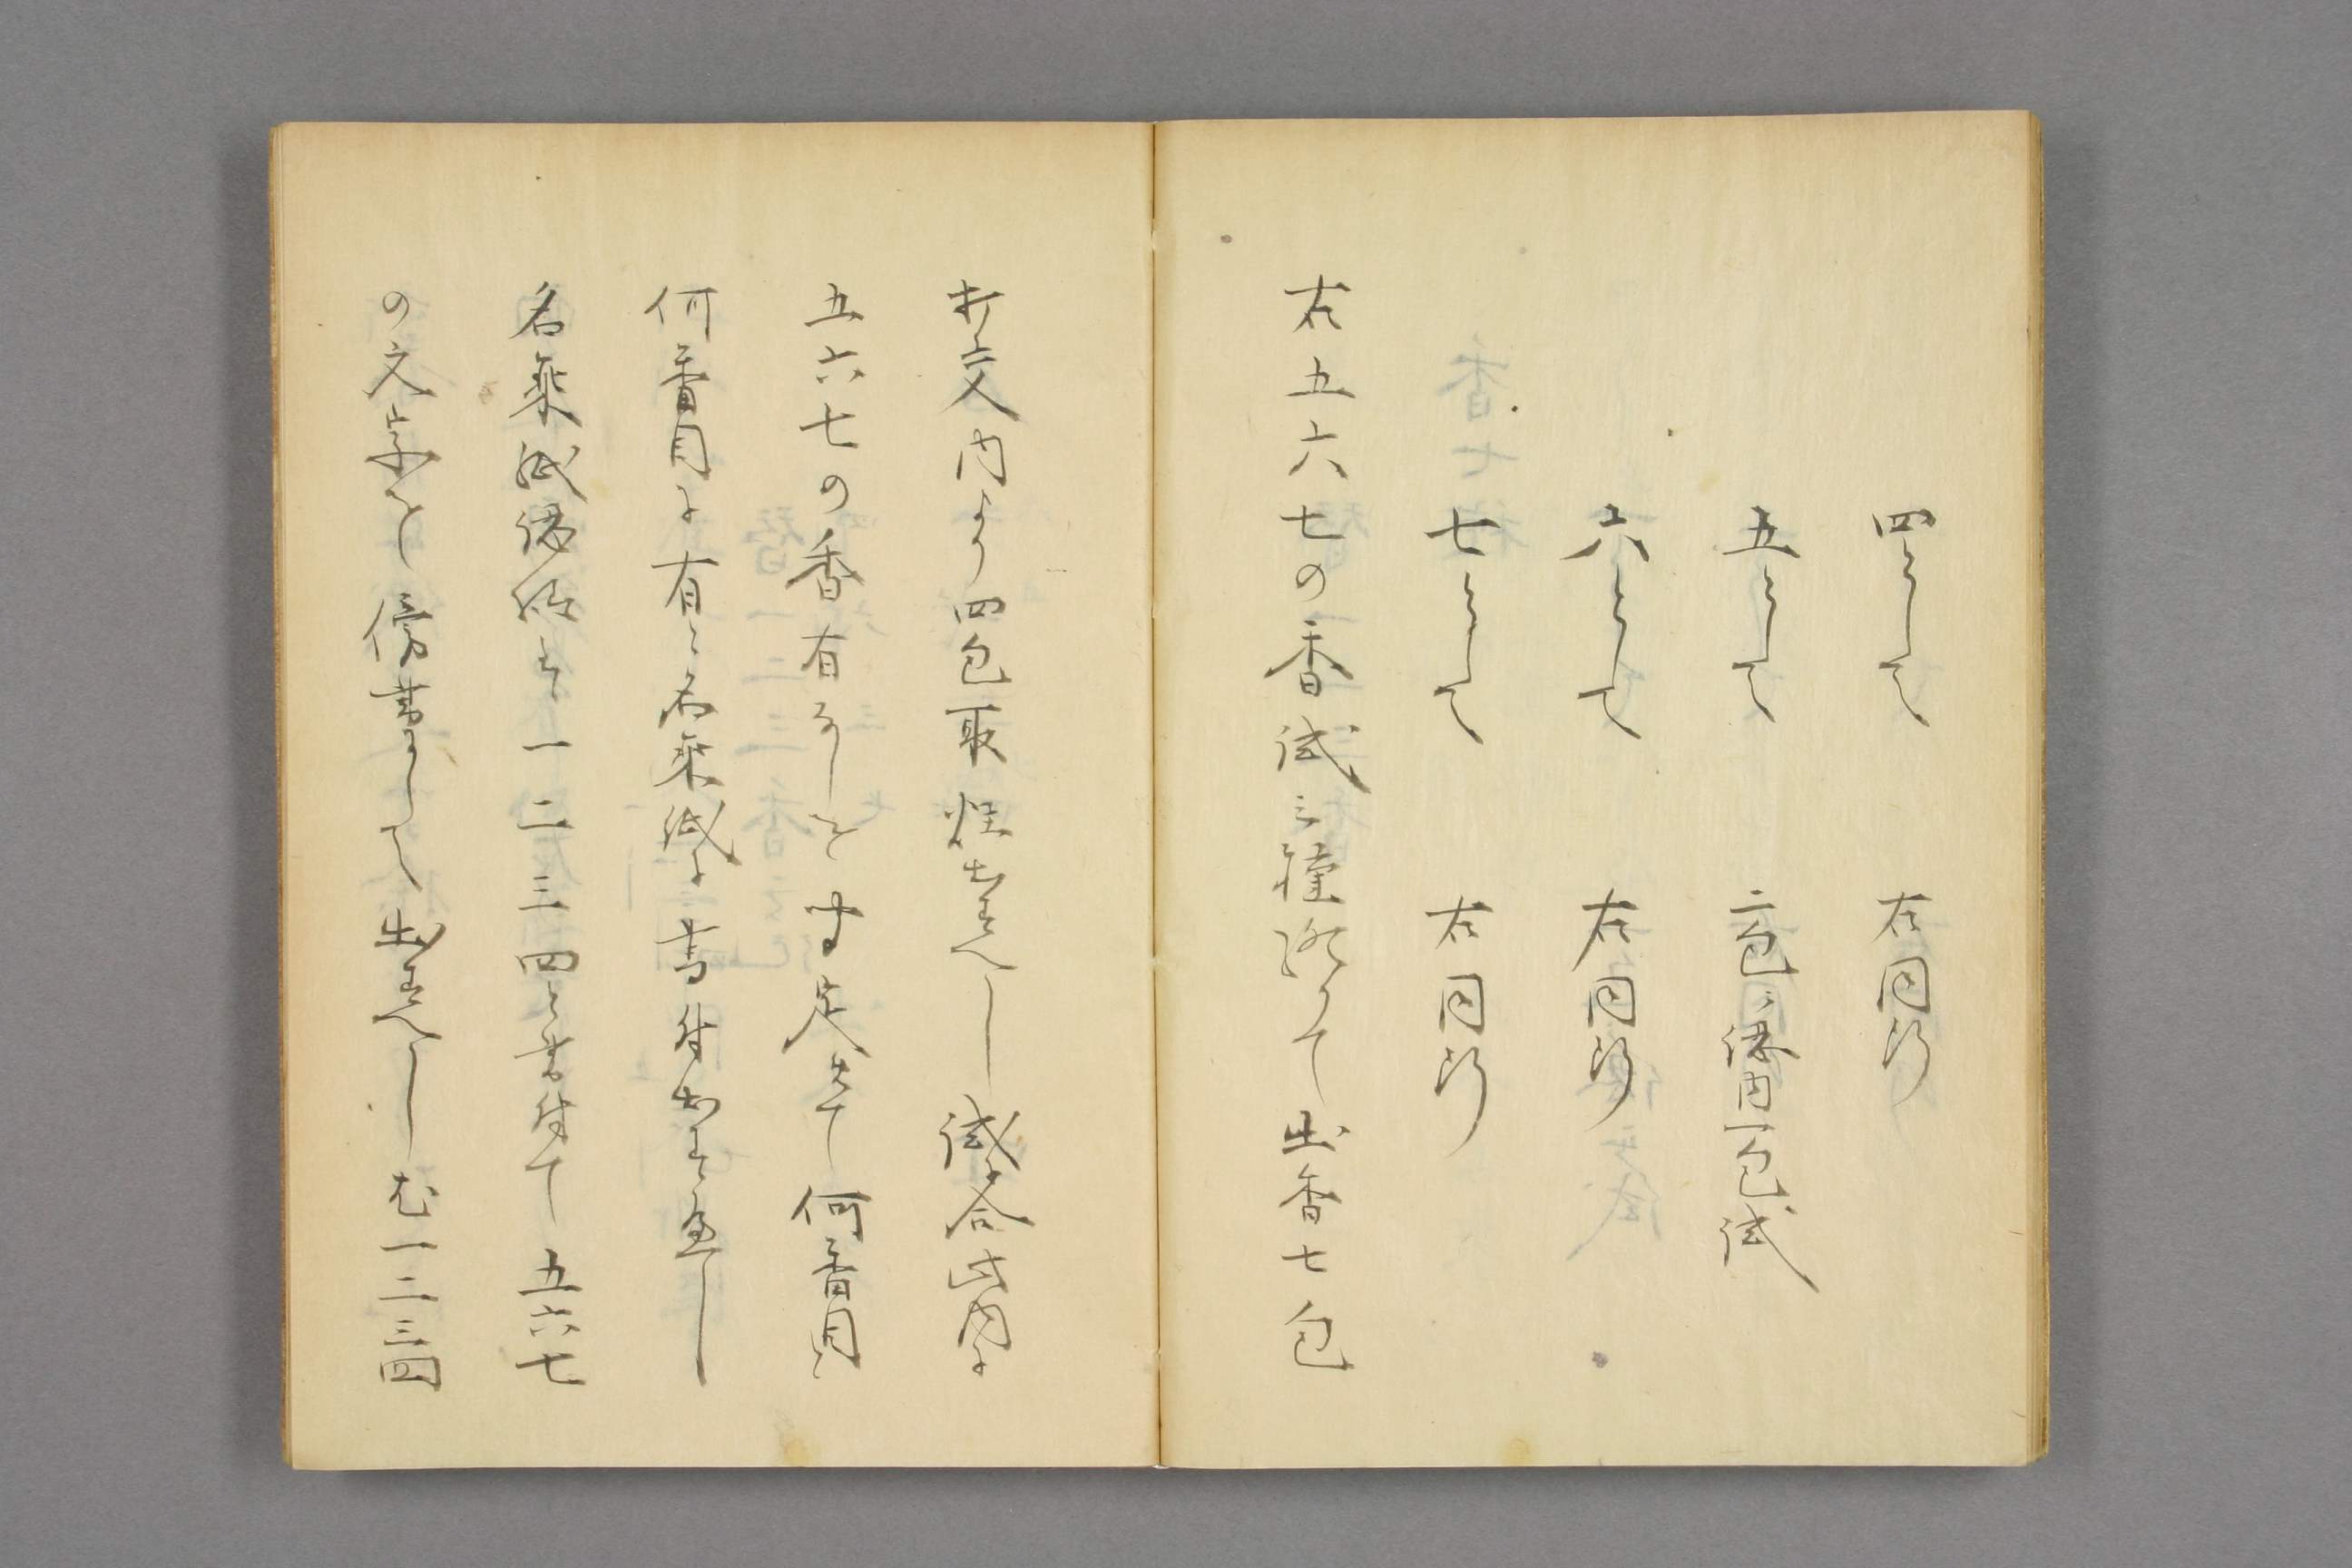 四として 右同断
五として 二包ニ認内一包試
六として 右同断
七として 右同断
右五六七の香試三種終りて出香七包
打交内より四包取炷出すへし試に合此内に
五六七の香有なしを聞定させて何番目と
何番目に有と名乗紙に書付出さすへし
名乗紙認様は一二三四と書付て五六七
の文字を傍書にして出すへしむ一二三四